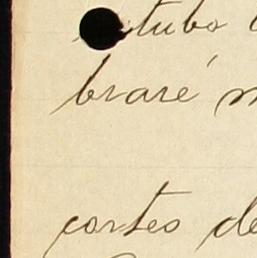 tubo
braré
cortes de